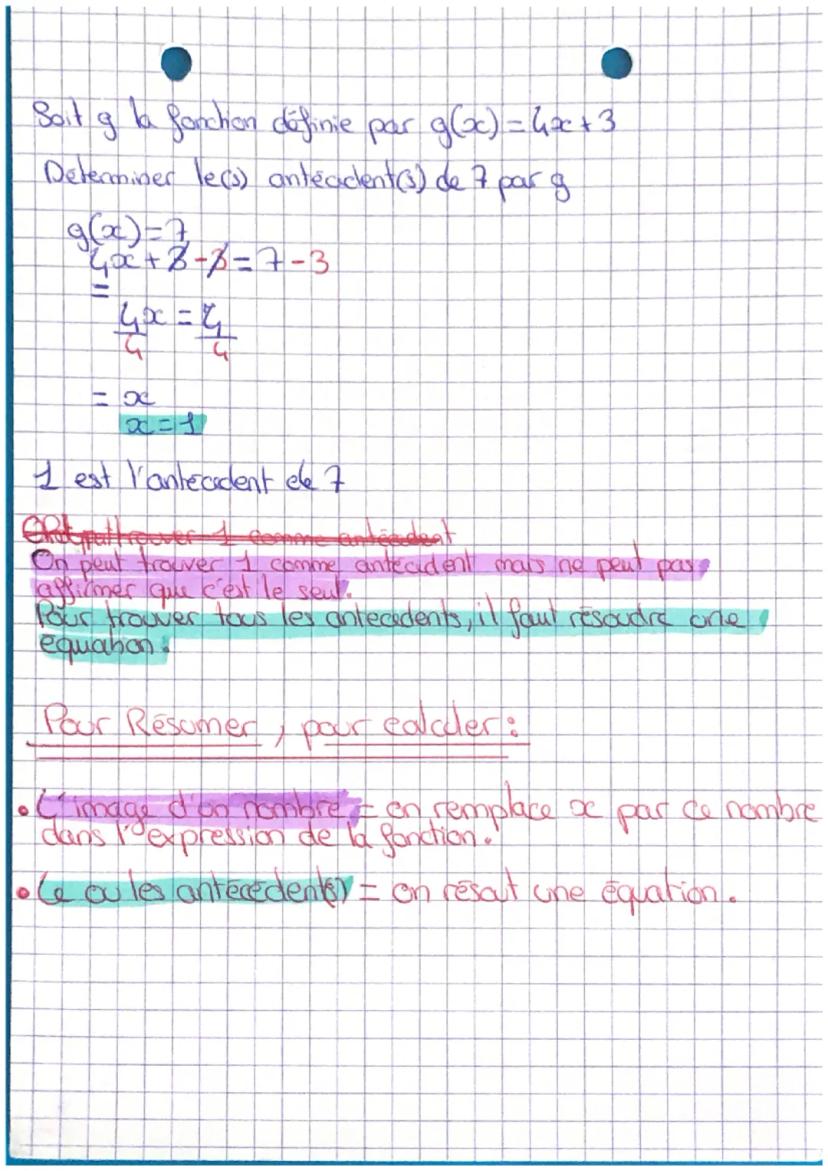 Soit g la fonction définie par g(x) = 4x + 3
Déterminer le(s) antécédent(s) de 7 par g
g(x) = 7
4x + 3 - 3 = 7 - 3
=
4x = 4
4 4
= x
x = 1
1 est l'antécédent de 7
comme antécédent
On peut trouver 1 comme antécédent mais ne peut pas
affirmer que c'est le seul.
Pour trouver tous les antécedents, il faut résoudre une
equation.
Pour Résumer, pour calculer :
• L'image d'un nombre = on remplace x par ce nombre
dans l'expression de la fonction.
• Le ou les antécédent(s) = on résout une équation.